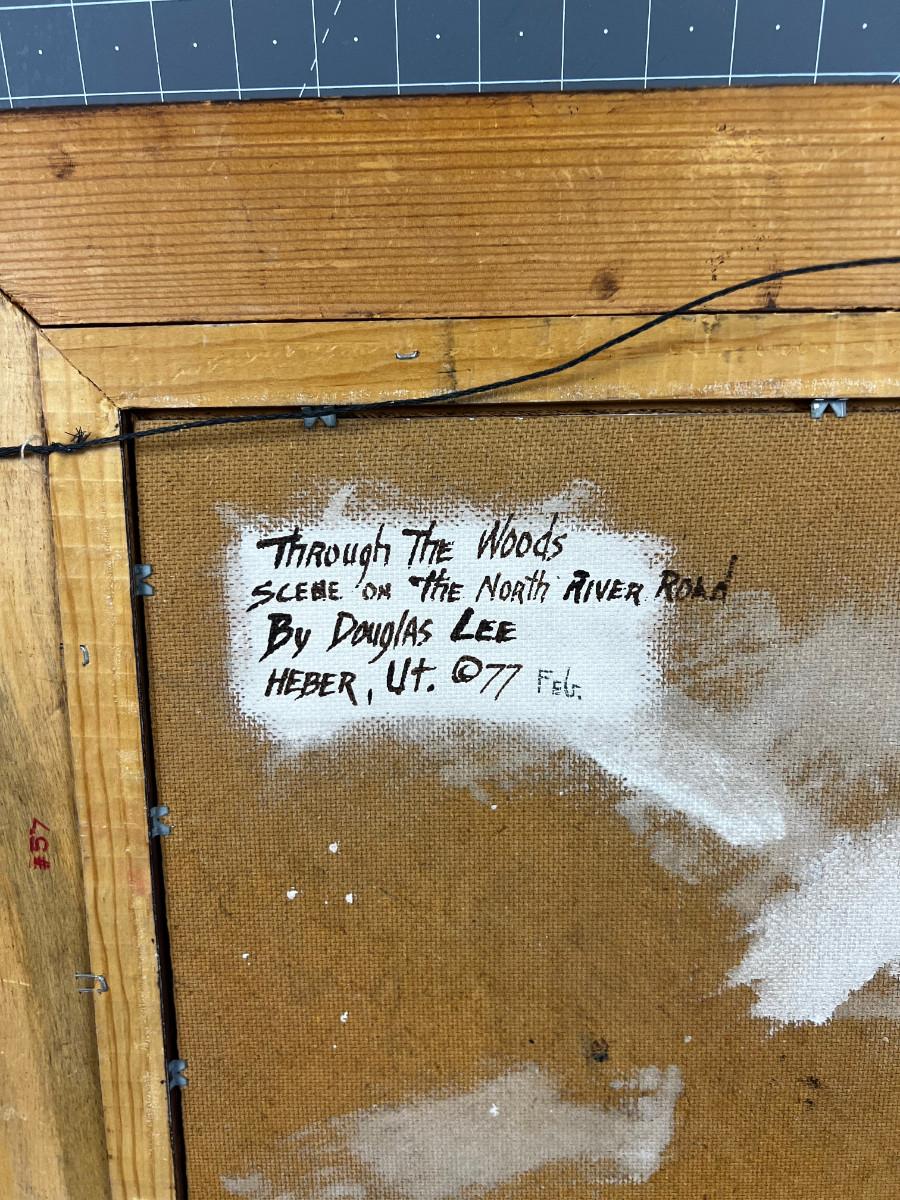 Through The Woods
SCENE ON the North RIVER ROAD
By Douglas LEE
HEBER, Ut. ©77 Feb.
#57